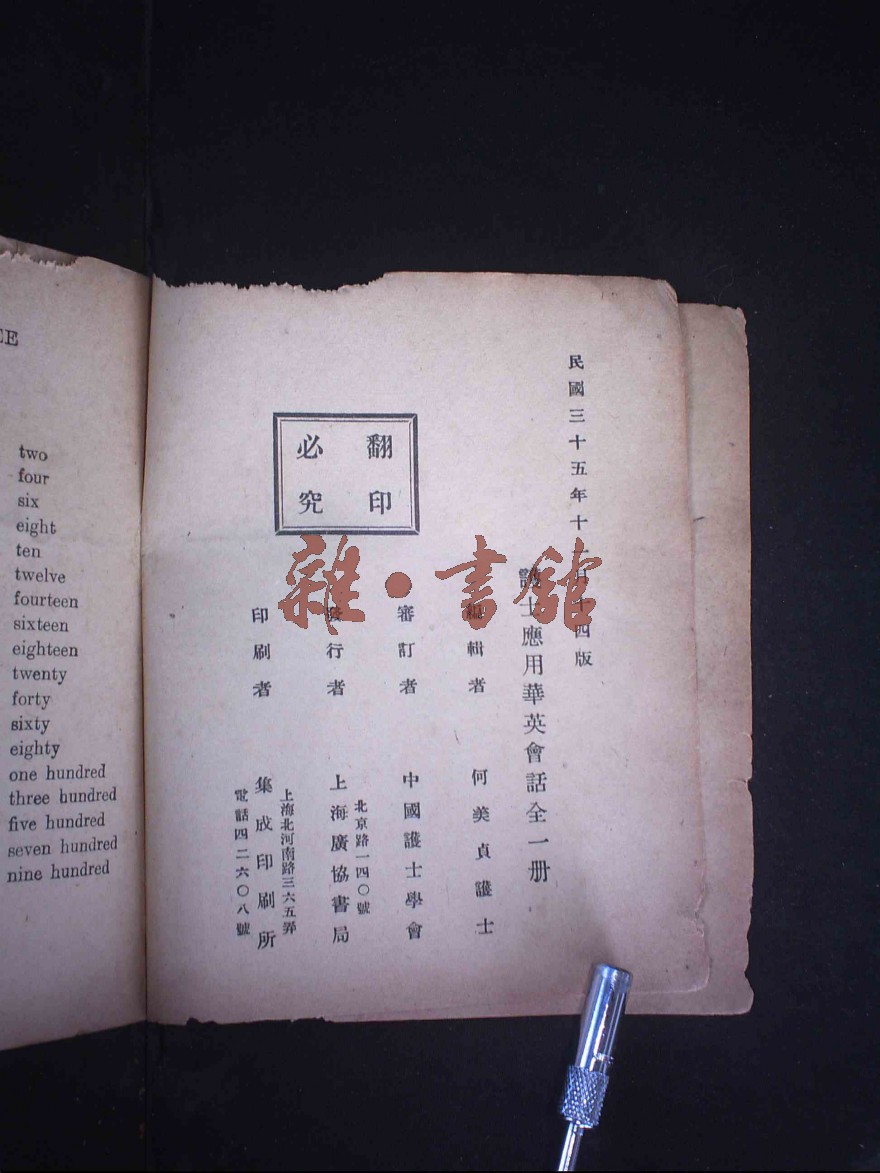 EE
two
four
six
eight
ten
twelve
fourteen
sixteen
eighteen
twenty
forty
sixty
eighty
one hundred
three hundred
five hundred
seven hundred
nine hundred
民國三十五年十二月十四版
護士應用華英會話全一册
編輯者 何美貞護士
審訂者 中國護士學會
發行者 上海廣協書局
北京路一四〇號
印刷者 集成印刷所
上海北河南路三六五弄
電話四二六〇八號
翻印
必究
雜·書館